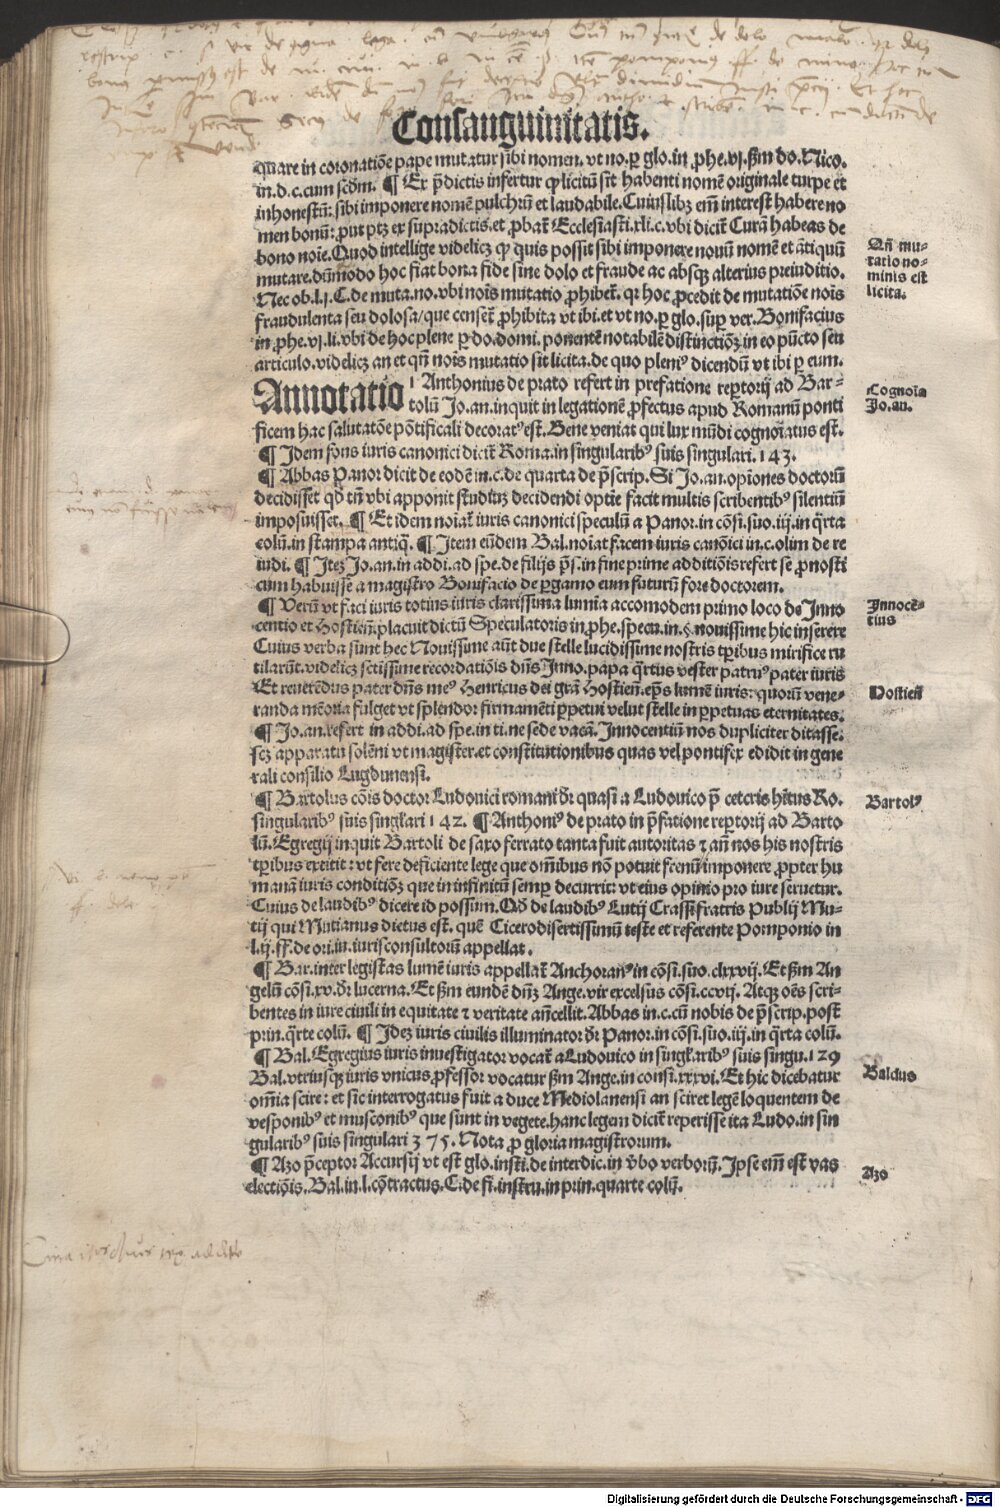 Consanguinitatis.
quare in coronatiõe pape mutatur sibi nomen. vt no. ꝑ glo. in ꝓhe. vj. ßm do. Nico.
in. d. c. cum scdm. ¶ Ex p̃dictis infertur ꝙ licitũ sit habenti nomẽ originale turpe et
inhonestũ: sibi imponere nomẽ pulchrũ et laudabile. Cuiuslibꝫ em̃ interest habere no
men bonũ: ꝓut ptꝫ ex supradictis. et ꝓbat̃ Ecclesiasti. xli. c. vbi dicit̃ Curã habeas de
bono noĩe. Quod intellige videlicꝫ ꝙ quis possit sibi imponere nouũ nomẽ et ãtiquũ
mutare. dũmodo hoc fiat bona fide sine dolo et fraude ac absqꝫ alterius preiuditio.
Nec ob. l. j. C. de muta. no. vbi noĩs mutatio ꝓhibet̃. qꝛ hoc ꝓcedit de mutatiõe noĩs
fraudulenta seu dolosa/que censet̃ ꝓhibita vt ibi. et vt no. ꝑ glo. suꝑ ver. Bonifacius
in ꝓhe. vj. li. vbi de hoc plene ꝑ do. domi. ponentẽ notabilẽ distinctiõꝫ in eo pũcto seu
articulo. videlicꝫ an et qñ noĩs mutatio sit licita. de quo pleniꝰ dicendũ vt ibi ꝑ eum.
Añ mu-
tatio no-
minis est
licita.
Annotatio ¹ Anthonius de prato refert in prefatione reꝑtorij ad Bar-
tolũ Jo. an. inquit in legationẽ ꝓfectus apud Romanũ ponti
ficem hac salutatõe põtificali decoratꝰ est. Bene veniat qui lux mũdi cognoĩatus est.
Cognoĩa
Jo. an.
¶ Idem fons iuris canonici dicit̃ Roma. in singularibꝰ suis singulari. 143.
¶ Abbas Panor dicit de eodẽ in. c. de quarta de p̃scrip. Si Jo. an. opiones doctorũ
decidisset qđ tñ vbi apponit studiuꝫ decidendi optie facit multis scribentibꝰ silentiũ
imposuisset. ¶ Et idem noiat̃ iuris canonici speculũ a Panor. in cõsi. suo. iij. in q̃rta
colũ. in stampa antiq̃. ¶ Item eũdem Bal. noĩat facem iuris canõici in. c. olim de re
iudi. ¶ Iteꝫ Jo. an. in addi. ad spe. de filijs p̃s. in fine prime additiõis refert se ꝓnosti
cum habuisse a magistro Bonifacio de ꝑgamo eum futurũ fore doctorem.
¶ Verũ vt faci iuris totius iuris clarissima lumĩa accomodem primo loco de Inno
centio et Hostieñ. placuit dictũ Speculatoris in ꝓhe. specu. in. §. nouissime hic inserere
Cuius verba sunt hec Nouissime aũt due stelle lucidissime nostris tꝑibus mirifice ru
tilarũt. videlicꝫ sctissime recordatiõis dñs Inno. papa q̃rtus vester patruꝰ pater iuris
Et reuerẽdus pater dñs meꝰ Henricus dei grã Hostieñ. ep̃s lumẽ iuris: quorũ vene-
randa mẽoria fulget vt splendor firmamẽti ꝑpetui velut stelle in ꝑpetuas eternitates.
Innocẽ-
tius
Hostieñ
¶ Jo. an. refert in addi. ad spe. in ti. ne sede vacã. Innocentiũ nos dupliciter ditasse.
scꝫ apparatu solẽni vt magister. et constitutionibus quas vel pontifex edidit in gene
rali consilio Lugdunensi.
¶ Bartolus cõis doctor Ludouici romani dr̃ quasi a Ludouico p̃ ceteris hĩtus Ro.
singularibꝰ suis singl̃ari 142. ¶ Anthoniꝰ de prato in p̃fatione reꝑtorij ad Barto
lũ. Egregij inquit Bartoli de saxo ferrato tanta fuit autoritas ⁊ añ nos his nostris
tꝑibus extitit: vt fere deficiente lege que om̃ibus nõ potuit frenũ imponere ꝓpter hu
manã iuris conditiõꝫ que in infinitũ semꝑ decurrit: vt eius opinio pro iure seruetur.
Cuius de laudibꝰ dicere id possum. Qđ de laudibꝰ Lutij Crassi fratris Publij Mu-
tij qui Mutianus dictus est. quẽ Cicero disertissimũ teste et referente Pomponio in
l. ij. ff. de ori. iu. iurisconsultorũ appellat.
Bartolꝰ
¶ Bar. inter legistas lumẽ iuris appellat̃ Anchoranꝰ in cõsi. suo. clxxvij. Et ßm An
gelũ cõsi. xv. dr̃ lucerna. Et ßm eundẽ dñꝫ Ange. vir excelsus cõsi. ccvij. Atqꝫ oẽs scri-
bentes in iure ciuili in equitate ⁊ veritate añcellit. Abbas in. c. cũ nobis de p̃scrip. post
prin. q̃rte colũ. ¶ Ideꝫ iuris ciuilis illuminator dr̃ Panor. in cõsi. suo. iij. in q̃rta colũ.
¶ Bal. Egregius iuris inuestigator vocat̃ a Ludouico in singl̃aribꝰ suis singu. 129
Bal. vtriusqꝫ iuris vnicus ꝓfessor vocatur ßm Ange. in consi. xxxvi. Et hic dicebatur
om̃ia scire: et sic interrogatus fuit a duce Mediolanensi an sciret legẽ loquentem de
vesponibꝰ et musconibꝰ que sunt in vegete. hanc legem dicit̃ reperisse ita Ludo. in sin
gularibꝰ suis singulari 375. Nota ꝓ gloria magistrorum.
Baldus
¶ Azo p̃ceptor Accursij vt est glo. insti. de interdic. in v̾bo verborũ. Ipse em̃ est vas
electiõis. Bal. in. l. cõtractus. C. de fi. instru. in prin. quarte colũ.
Azo
Digitalisierung gefördert durch die Deutsche Forschungsgemeinschaft - DFG